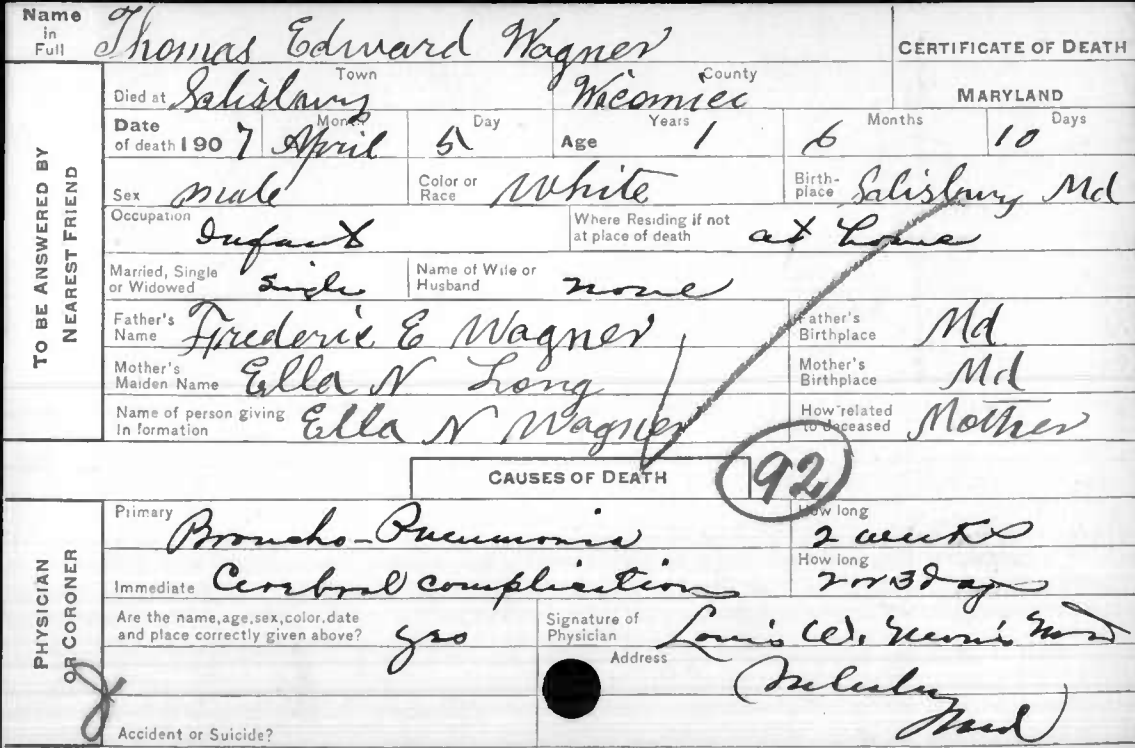 Name in Full Thomas Edward Wagner
CERTIFICATE OF DEATH
MARYLAND
TO BE ANSWERED BY NEAREST FRIEND
Died at Salisbury Town Wicomico County
Date of death 1907 Month April Day 5 Age Years 1 Months 6 Days 10
Sex male Color or Race White Birthplace Salisbury Md
Occupation Infant Where Residing if not at place of death at home
Married, Single or Widowed Single Name of Wife or Husband none
Father's Name Frederic E Wagner Father's Birthplace Md
Mother's Maiden Name Ella N Long Mother's Birthplace Md
Name of person giving Information Ella N Wagner How related to deceased Mother
CAUSES OF DEATH 92
PHYSICIAN OR CORONER
Primary Broncho-Pneumonia How long 2 weeks
Immediate Cerebral complication How long 2 or 3 days
Are the name, age, sex, color, date and place correctly given above? yes Signature of Physician Louis W.
Address
Md
Accident or Suicide?